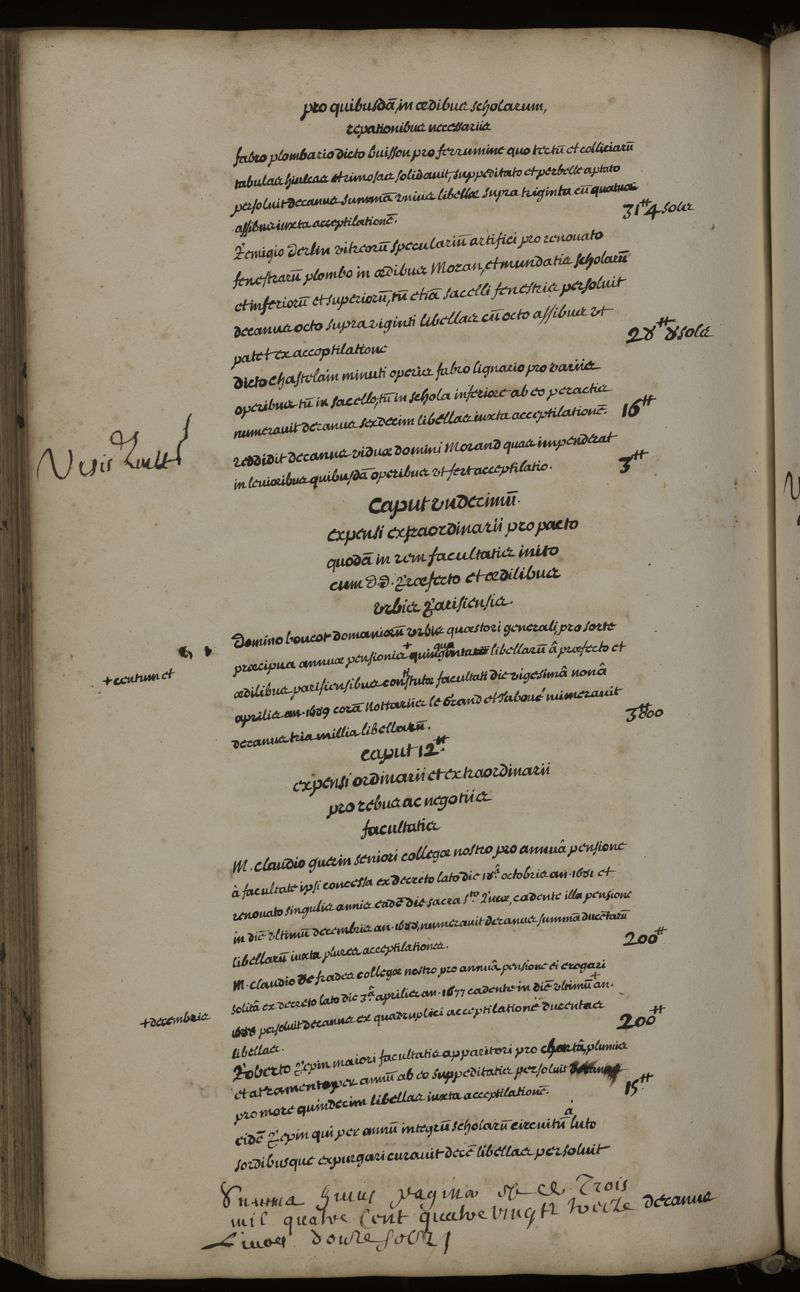 pro quibusdā, in ædibus scholarum,
repationibus necessariis
fabro plombario dicto buisson pro ferrumine quo tectū et colliciarū
tabulas hiulcas et rimosas solidauit, suppeditato et perbelle aptato
persoluit decanus summā unius libellæ supra triginta cū quatuor
assibus iuxta acceptilationē. 31tt 4 sols
Remigio Derlin vitreorū speculariū artifici pro renouato
fenestrarū plombo in ædibus Moran, et mundatis scholarū
et inferiorū et superiorū, tū etiā sacelli fenestris persoluit
decanus octo supra viginti libellas cū octo assibus vt
patet ex acceptilatione 28tt 8 sols
dicto chastelain minuti operis fabro lignario pro variis
operibus tū in sacello, tū in schola inferiore ab eo peractis
numerauit decanus sexdecim libellas iuxta acceptilationē. 16tt
reddidit decanus viduæ domini Morand quas impenderat
in leuioribus quibusdā operibus vt fert acceptilatio. 3tt
Caput undecimū.
expensi extraordinarii pro pacto
quodā in rem facultatis inito
cum D.D. Præfecto et ædilibus
urbis Parisiensis.
Domino boucot domaniorū urbis quæstori generali, pro sorte
præcipua annuæ pensionis + libellarū â præfecto et
+ centum et
ædilibus parisiensibus constitutæ facultati die vigesimâ nonâ
aprilis an. 1689 corā Nottariis le Grand et numerauit
decanus tria millia libellarū. 3000tt
caput 12.
expensi ordinarii et extraordinarii
pro rebus ac negotiis
facultatis
M. claudio guerin seniori collegæ nostro pro annuâ pensione
à facultate ipsi concessa ex decreto lato die 18â octobris an. 1681 et
renouato singulis annis eâdē die sacra sto Lucæ, cadente illa pensione
in diē ultimū decembris an. 1688, numerauit decanus summā ducētarū
libellarū iuxta plures acceptilationes. 200tt
M. claudio De frades collegæ nostro pro annuâ pensione ei erogari
solitâ ex decreto lato die 3â aprilis an. 1677 cadente in diē ultimū + an.
+ decembris
1688 persoluit decanus ex quadruplici acceptilatione ducentas
libellas. 200tt
Roberto Pepin maiori facultatis apparitori pro chartâ, plumis
et atramento per annū ab eo suppeditatis persoluit
pro more quindecim libellas iuxta acceptilationē. 15tt
eidē Pepin qui per annū integrū scholarū circuitū â luto
sordibusque expurgari curauit decē libellas persoluit
decanus
Summa huius paginæ Trois
mil quatre Cent quatre vingt treize
Liures douze solz